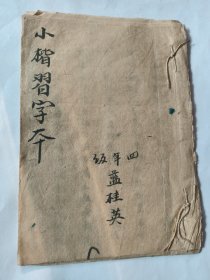 小楷習字本
四年级
桂英